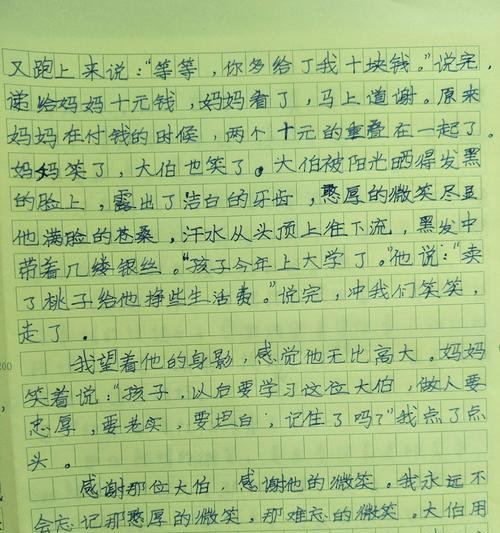 又跑上来说：“等等，你多给了我十块钱。”说完，
递给妈妈十元钱，妈妈看了，马上道谢。原来
妈妈在付钱的时候，两个十元的重叠在一起了。
妈妈笑了，大伯也笑了。大伯被阳光晒得发黑
的脸上，露出了洁白的牙齿，憨厚的微笑尽显
他满脸的苍桑，汗水从头顶上往下流，黑发中
带着几缕银丝。“孩子今年上大学了。”他说：“卖
了桃子给他挣些生活费。”说完，冲我们笑笑，
走了．
我望着他的身影，感觉他无比高大。妈妈
200
笑着说：“孩子，以后要学习这位大伯，做人要
忠厚，要老实，要坦白，记住了吗？”我点了点
头。
感谢那位大伯，感谢他的微笑。我永远不
会忘记那憨厚的微笑，那难忘的微笑。大伯用